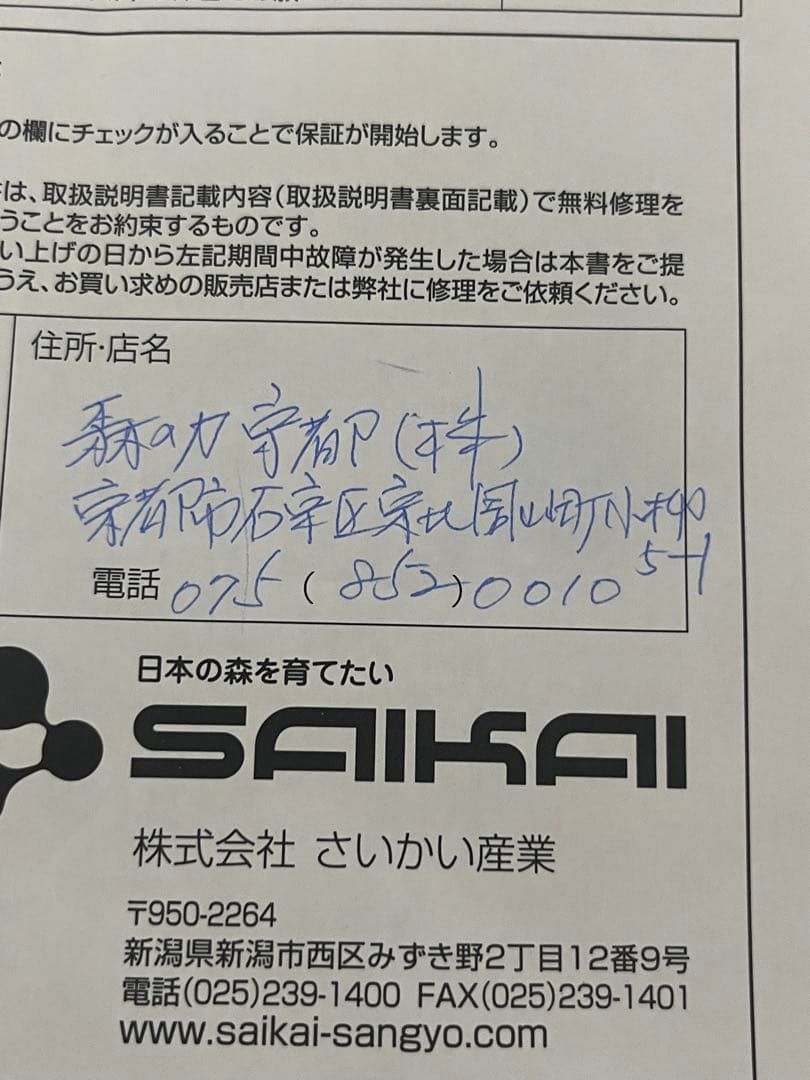 の欄にチェックが入ることで保証が開始します。
は、取扱説明書記載内容（取扱説明書裏面記載）で無料修理を
うことをお約束するものです。
い上げの日から左記期間中故障が発生した場合は本書をご提
うえ、お買い求めの販売店または弊社に修理をご依頼ください。
住所・店名
森の力京都(株)
京都市右京区京北周山町小柳
5-1
電話 075 ( 852 ) 0010
日本の森を育てたい
SAIKAI
株式会社 さいかい産業
〒950-2264
新潟県新潟市西区みずき野2丁目12番9号
電話(025)239-1400 FAX(025)239-1401
www.saikai-sangyo.com